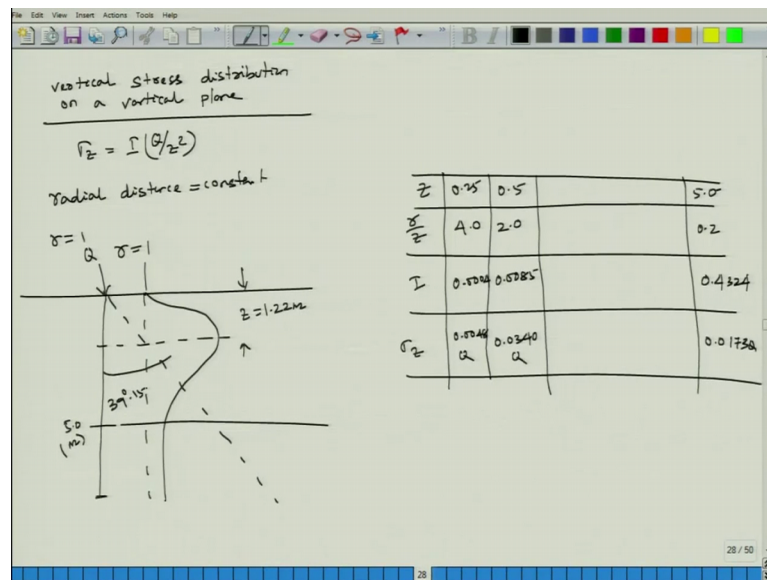 File Edit View Insert Actions Tools Help
vertical stress distribution
on a vertical plane
σz = I (Q/z²)
radial distance = constant
r=1
Q r=1
z=1.22m
39°.15'
5.0
(m)
z 0.25 0.5 5.0
r/z 4.0 2.0 0.2
I 0.0085 0.4324
σz 0.0340 Q 0.0173Q
28 / 50
28